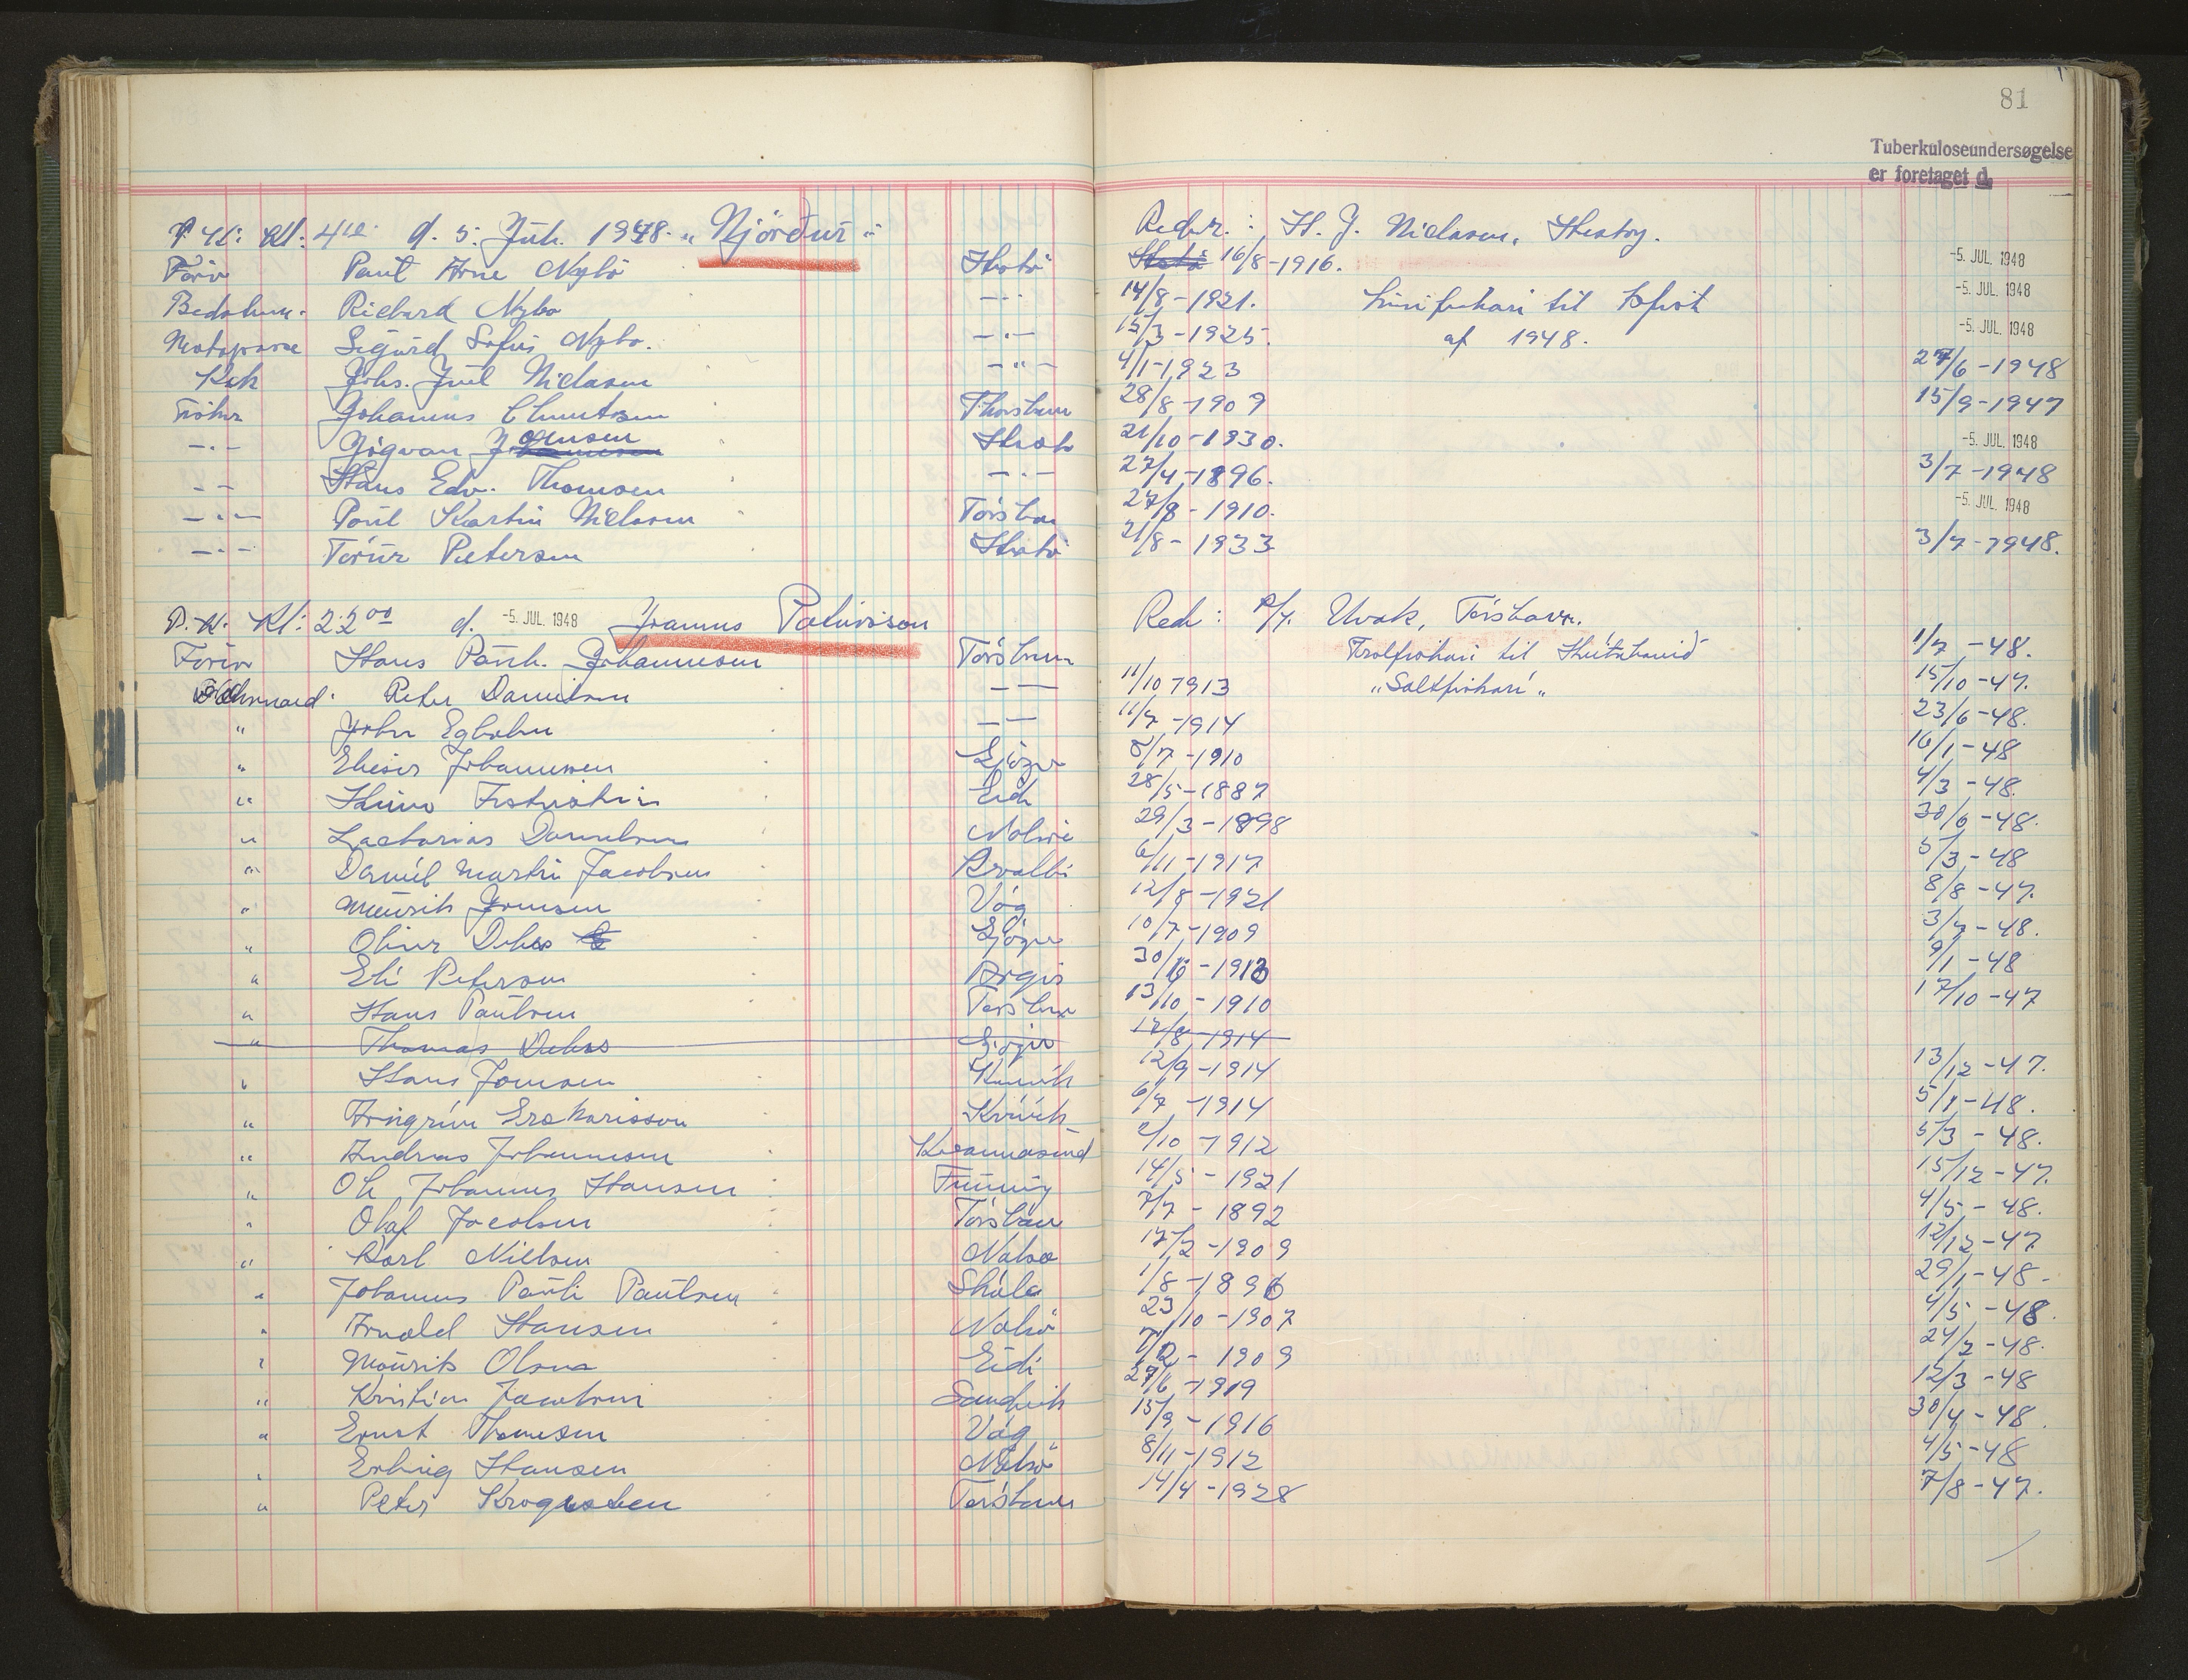 81
Tuberkuloseundersøgelse
er foretaget d.
d. 5. Juli. 1948. „Njörður“ Reder.: H. J. Niclasen, Hestoy.
Förir Paul Arne Nybö Hestö 16/8-1916. -5. JUL. 1948
Richard Nybo -"- 14/8-1921. til af 1948. -5. JUL. 1948
Sigurd Sofus Nybo. -"- 15/3-1925. -5. JUL. 1948
Kok Johs. Juul Niclasen -"- 4/1-1923 27/6-1948
Johannus Clementsen Thorshavn 28/8-1909 15/9-1947
-"- Jógvan Joensen Hestö 21/10-1930. -5. JUL. 1948
-"- Hans Edv. Thomsen -"- 27/4-1896. 3/7-1948
-"- Poul Martin Nielsen Tórshav 27/8-1910. -5. JUL. 1948
-"- Torur Petersen Hestö 21/8-1933 3/7-1948.
Kl: 22 00 d. -5. JUL 1948 Joannes Patursson Red: P/F. Tórshavn.
Förir Hans Paul. Johannesen Tórshavn til 1/7-48.
Peter Danielsen -"- 11/10 1913 15/10-47.
" John Egholm -"- 11/7-1914 23/6-48.
" Elieser Johannesen Gjógv 8/7-1910 16/1-48
" Eidi 28/5-1887 4/3-48.
" Zacharias Danielsen Nolsoi 29/3-1898 30/6-48.
" Daniel Martin Jacobsen Hvalbi 6/11-1917 5/3-48
" Mourits Joensen Vág 12/8-1921 8/8-47.
" Oliver Debes Gjógv 10/7-1909 3/7-48.
" Eli Petersen Argir 30/6-1913 9/1-48
" Hans Paulsen Torshavn 13/10-1910 17/10-47
" Thomas Debes Gjógv 17/8-1914
" Hans Joensen 12/9-1914 13/12-47.
" Arngrím Kvívik 6/7-1914 5/1-48.
" Andreas Johannesen Hvannasund 2/10-1912 5/3-48.
" Ole Johannes Hansen Funning 14/5-1921 15/12-47.
" Olaf Jacobsen Tórshavn 7/7-1892 4/5-48.
" Karl Nielsen Nolso 17/2-1909 12/12-47
" Johannes Pauli Paulsen Skála 1/8-1896 29/1-48-
" Arnold Hansen Nolsö 23/10-1907 4/5-48.
" Mourits Olsen Eidi 7/12-1909 24/2-48.
" Kristian Jacobsen Sandvik 27/6-1919 12/3-48
" Ernst Thomsen Vág 15/9-1916 30/4-48.
" Erling Hansen Nolsö 8/11-1912 4/5-48
" Peter Krogesteen Tórshavn 14/4-1928 7/8-47.